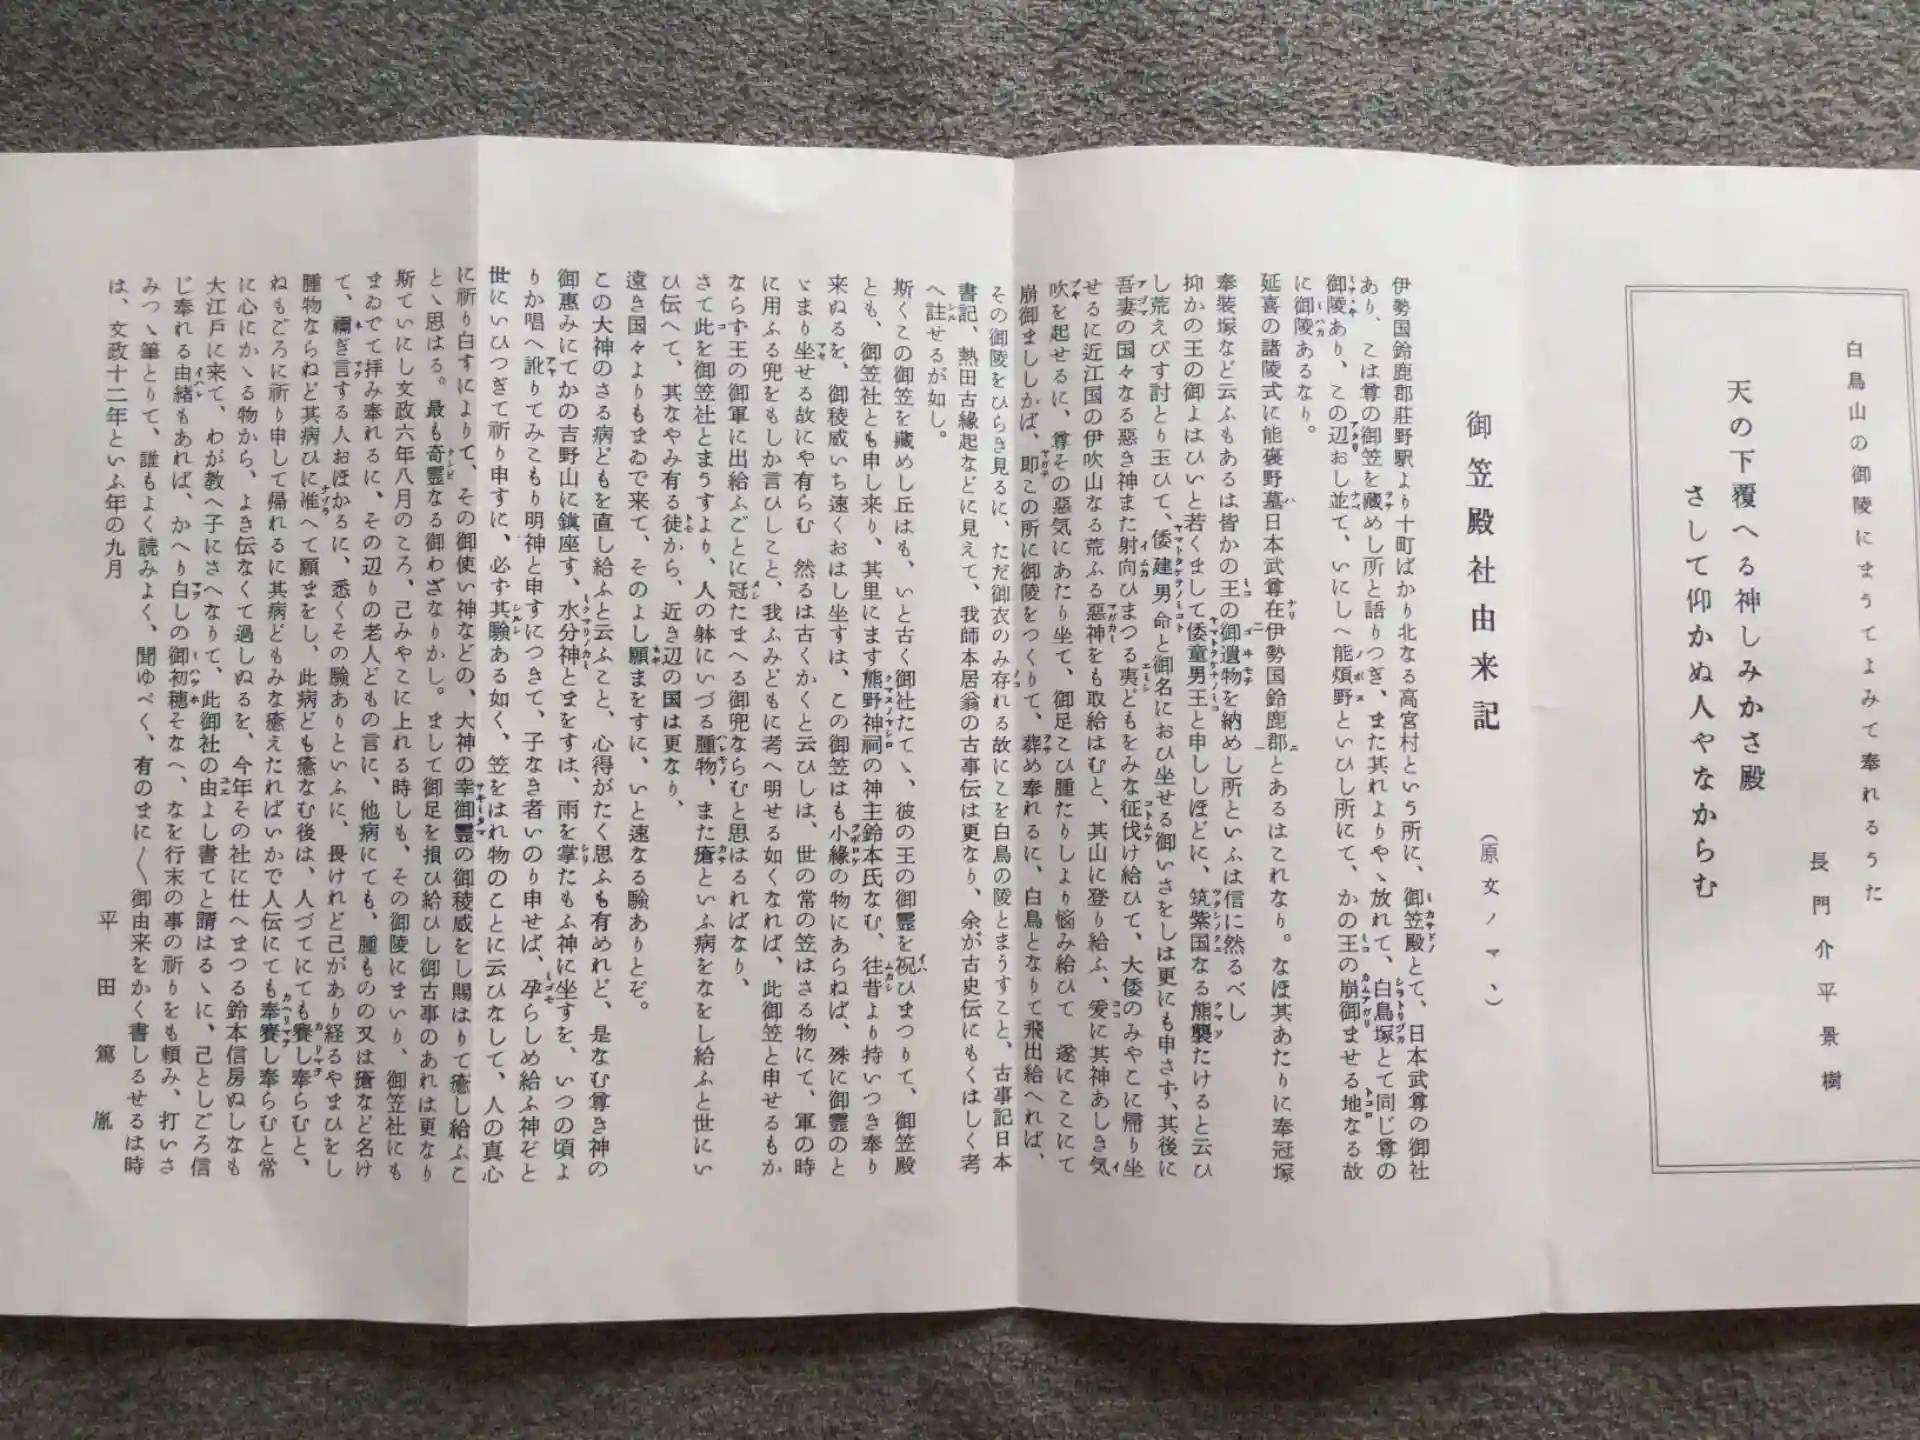 白鳥山の御陵にまうてよみて奉れるうた
長門介平景樹
天の下覆へる神しみかさ殿
さして仰かぬ人やなからむ
御笠殿社由来記
（原文ノマヽ）
伊勢国鈴鹿郡荘野駅より十町ばかり北なる高宮村という所に、御笠殿とて、日本武尊の御社
あり、こは尊の御笠を蔵めし所と語りつぎ、また其れよりやゝ放れて、白鳥塚とて同じ尊の
御陵あり、この辺おし並て、いにしへ能煩野といひし所にて、かの王の崩御ませる地なる故
に御陵あるなり。
延喜の諸陵式に能褒野墓日本武尊在伊勢国鈴鹿郡とあるはこれなり。なほ其あたりに奉冠塚
奉装塚など云ふもあるは皆かの王の御遺物を納めし所といふは信に然るべし
抑かの王の御よはひいと若くまして倭童男王と申ししほどに、筑紫国なる熊襲たけると云ひ
し荒えびす討とり玉ひて、倭建男命と御名におひ坐せる御いさをしは更にも申さず、其後に
吾妻の国々なる悪き神また射向ひまつる夷どもをみな征伐け給ひて、大倭のみやこに帰り坐
せるに近江国の伊吹山なる荒ふる悪神をも取給はむと、其山に登り給ふ、爰に其神あしき気
吹を起せるに、尊その悪気にあたり坐て、御足こひ腫たりしより悩み給ひて 遂にここにて
崩御まししかば、即この所に御陵をつくりて、葬め奉れるに、白鳥となりて飛出給へれば、
その御陵をひらき見るに、ただ御衣のみ存れる故にこを白鳥の陵とまうすこと、古事記日本
書記、熱田古縁起などに見えて、我師本居翁の古事伝は更なり、余が古史伝にもくはしく考
へ註せるが如し。
斯くこの御笠を蔵めし丘はも、いと古く御社たてゝ、彼の王の御霊を祝ひまつりて、御笠殿
とも、御笠社とも申し来り、其里にます熊野神祠の神主鈴本氏なむ、往昔より持いつき奉り
来ぬるを、御稜威いち速くおはし坐すは、この御笠はも小縁の物にあらねば、殊に御霊のと
ゞまり坐せる故にや有らむ 然るは古くかくと云ひしは、世の常の笠はさる物にて、軍の時
に用ふる兜をもしか言ひしこと、我ふみどもに考へ明せる如くなれば、此御笠と申せるもか
ならず王の御軍に出給ふごとに冠たまへる御兜ならむと思はるればなり、
さて此を御笠社とまうすより、人の躰にいづる腫物、また瘡といふ病をなをし給ふと世にい
ひ伝へて、其なやみ有る徒から、近き辺の国は更なり、
遠き国々よりもまゐで来て、そのよし願まをすに、いと速なる験ありとぞ。
この大神のさる病どもを直し給ふと云ふこと、心得がたく思ふも有めれど、是なむ尊き神の
御恵みにてかの吉野山に鎮座す、水分神とまをすは、雨を掌たもふ神に坐すを、いつの頃よ
りか唱へ訛りてみこもり明神と申すにつきて、子なき者いのり申せば、孕らしめ給ふ神ぞと
世にいひつぎて祈り申すに、必ず其験ある如く、笠をはれ物のことに云ひなして、人の真心
に祈り白すによりて、その御使い神などの、大神の幸御霊の御稜威をし賜はりて癒し給ふこ
とゝ思はる。最も奇霊なる御わざなりかし。まして御足を損ひ給ひし御古事のあれは更なり
斯ていにし文政六年八月のころ、己みやこに上れる時しも、その御陵にまいり、御笠社にも
まゐでて拝み奉れるに、その辺りの老人どもの言に、他病にても、腫ものの又は瘡など名け
て、禰ぎ言する人おほかるに、悉くその験ありといふに、畏けれど己があり経るやまひをし
腫物ならねど其病ひに准へて願まをし、此病ども癒なむ後は、人づてにても賽し奉らむと、
ねもごろに祈り申して帰れるに其病どもみな癒えたればいかで人伝にても奉賽し奉らむと常
に心にかゝる物から、よき伝なくて過しぬるを、今年その社に仕へまつる鈴本信房ぬしなも
大江戸に来て、わが教へ子にさへなりて、此御社の由よし書てと請はるゝに、己としごろ信
じ奉れる由緒もあれば、かへり白しの御初穂そなへ、なを行末の事の祈りをも頼み、打いさ
みつゝ筆とりて、誰もよく読みよく、聞ゆべく、有のまに〱御由来をかく書しるせるは時
は、文政十二年といふ年の九月
平田篤胤